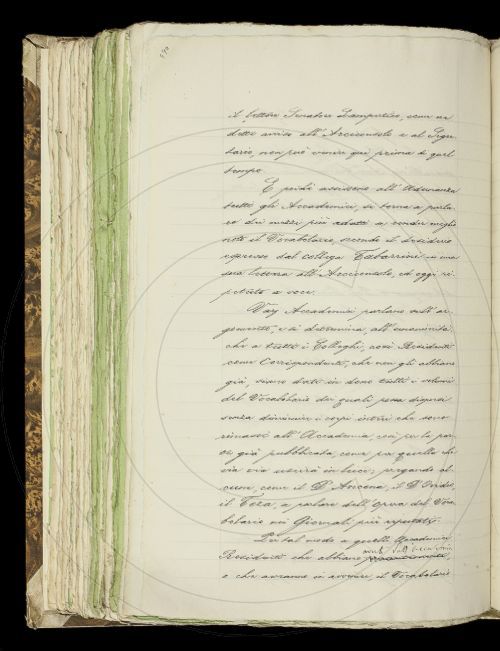 Il lettore Senatore Lampertico, come ne
dette avviso all'Arciconsolo e al Segre-
tario, non può venire qui prima di quel
tempo.
E poichè assistono all'Adunanza
tutti gli Accademici, si torna a parla-
re dei mezzi più adatti a render meglio
noto il Vocabolario, secondo il desiderio
espresso dal collega Tabarrini in una
sua lettera all'Arciconsolo, ed oggi ri-
petuto a voce.
Varj Accademici parlano sull'ar-
gomento, e si determina, all'unanimità,
che a tutti i Colleghi, così Residenti
come Corrispondenti, che non gli abbiano
già, siano dati in dono tutti i volumi
del Vocabolario dei quali possa disporsi
senza diminuire i corpi interi che sono
rimasti all'Accademia, così per la par-
te già pubblicata, come per quella che
via via uscirà in luce; pregando al-
cuni, come il D'Ancona, il D'Ovidio,
il Teza, a parlare dell'opera del Voca-
bolario nei Giornali più reputati.
Per tal modo a quelli Accademici
Residenti che abbiano
o che avranno in avvenire il Vocabolario